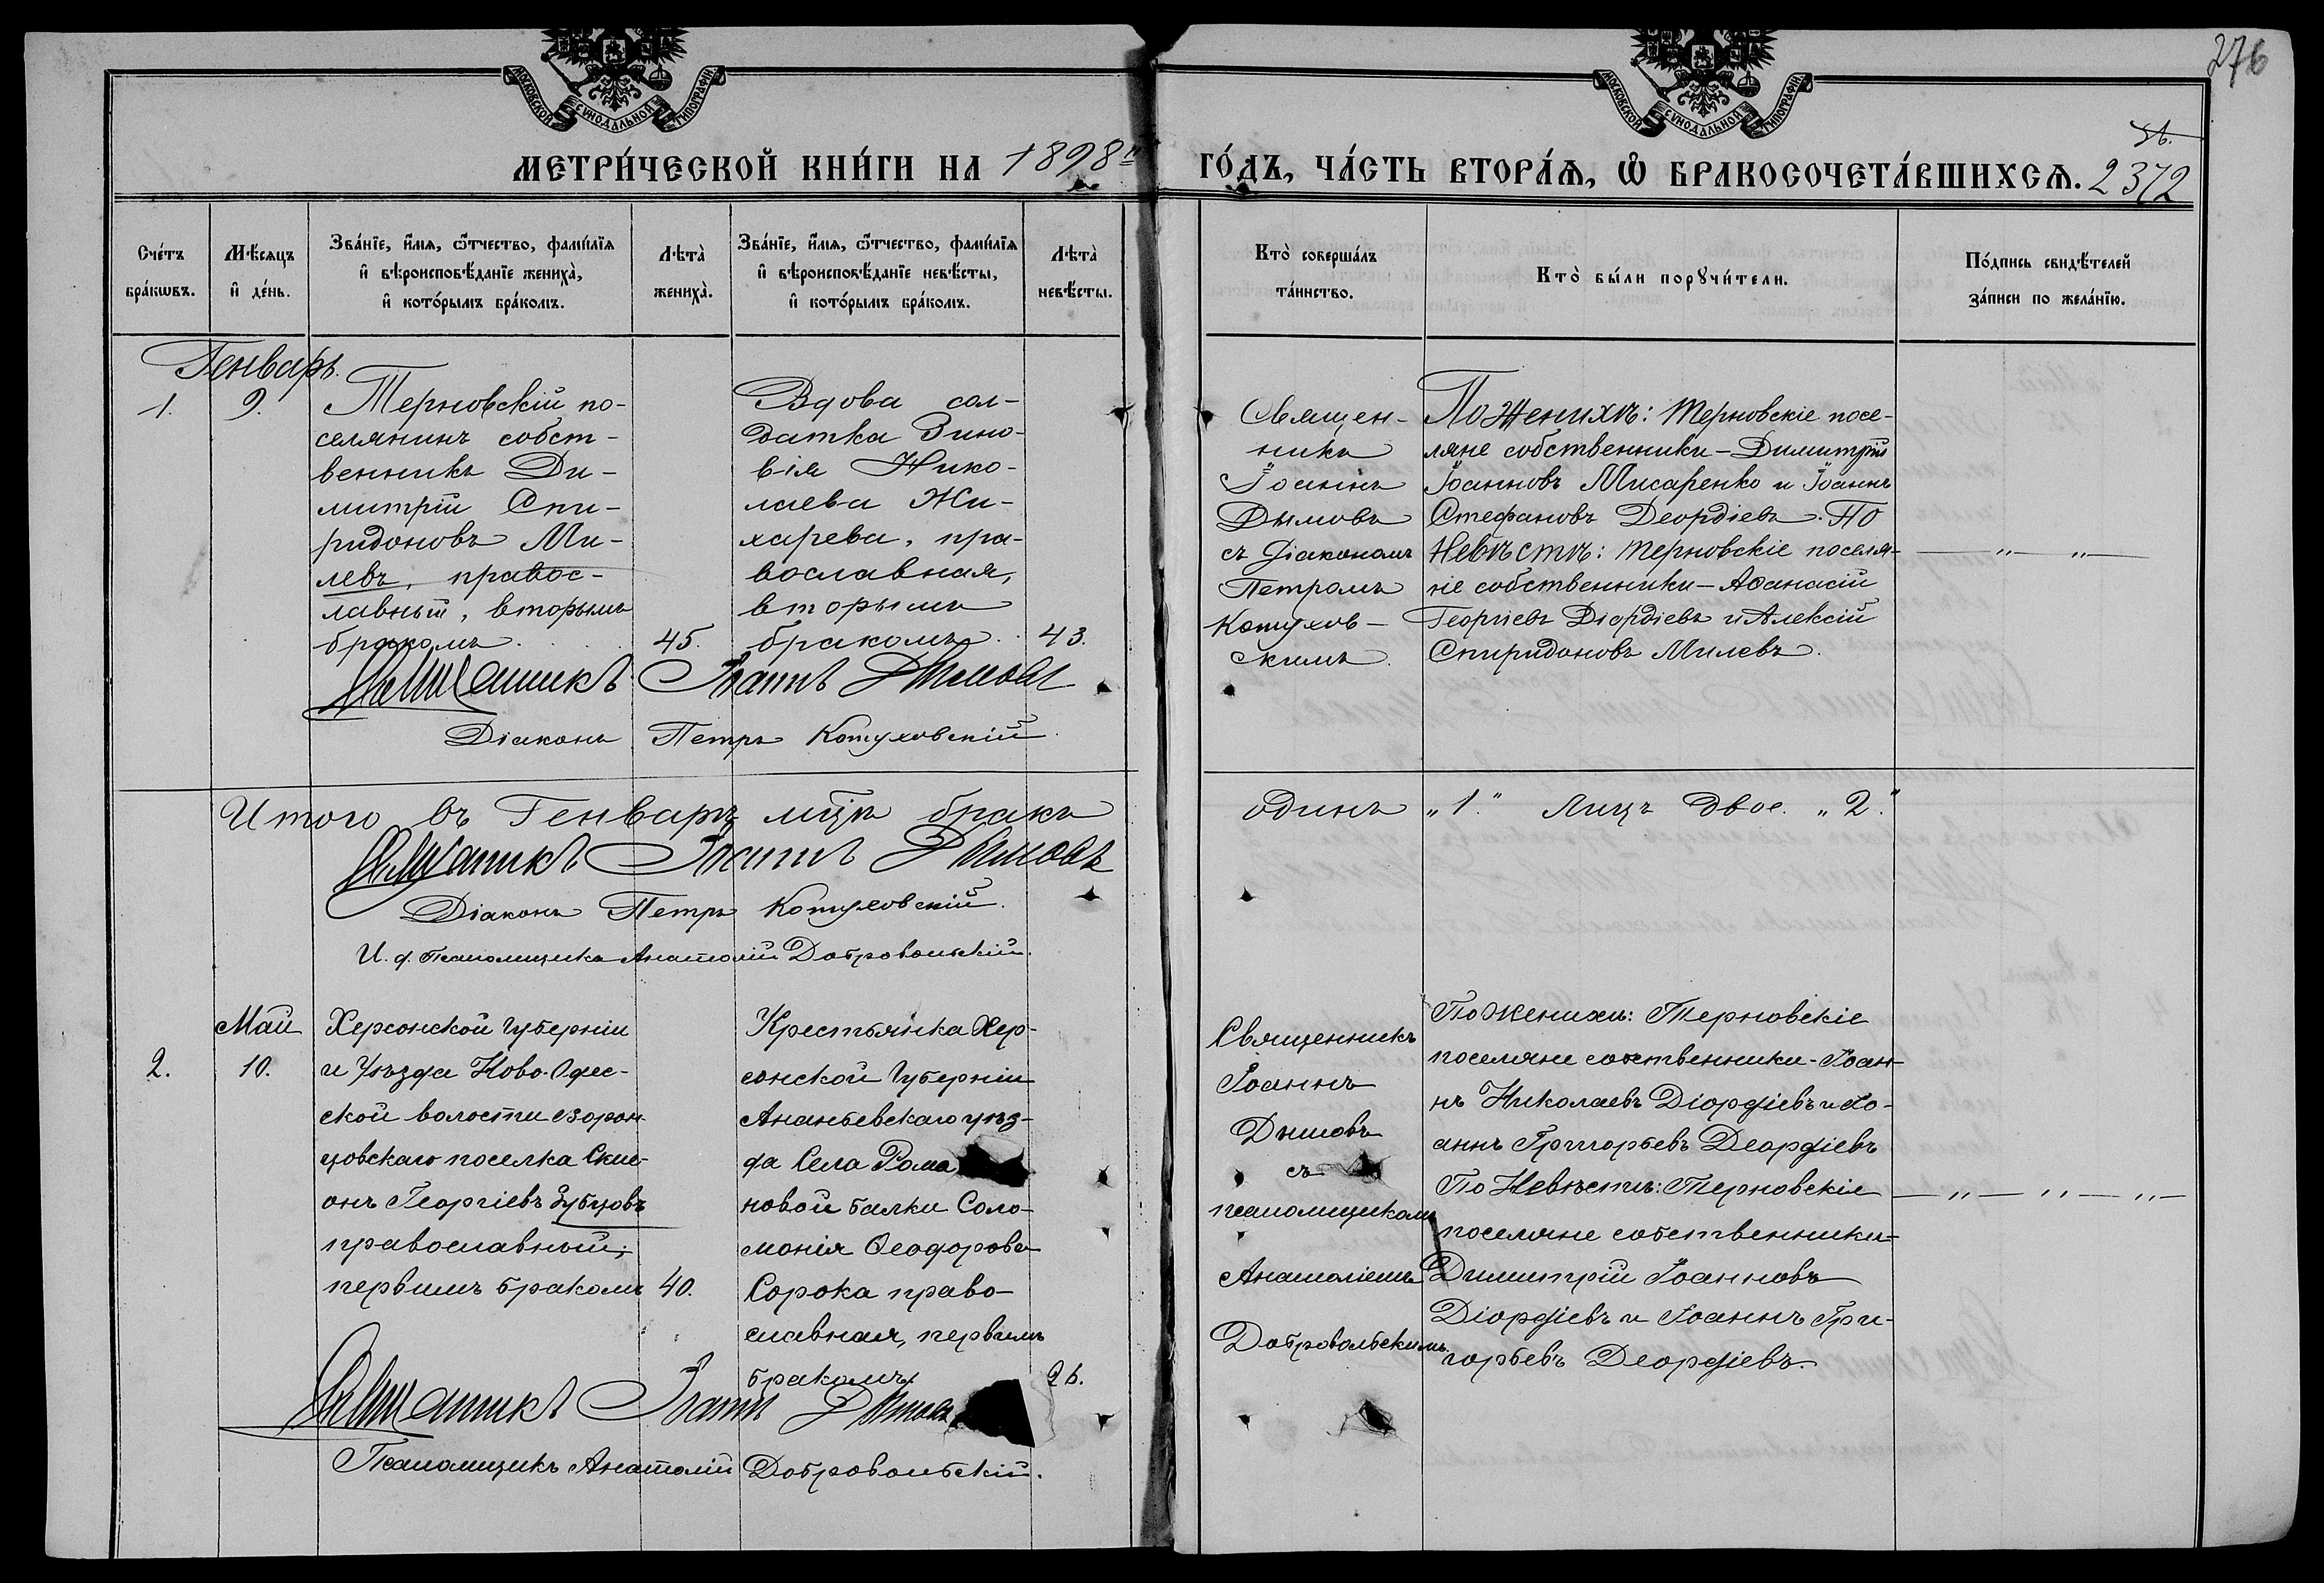 276
МОСКОВСКОЙ СУНОДАЛЬНОЙ ТИПОГРАФІИ
МОСКОВСКОЙ СУНОДАЛЬНОЙ ТИПОГРАФІИ
МЕТРИ́ЧЕСКОЙ КНИ́ГИ НА 1898
ГО́ДЪ, ЧА́СТЬ ВТОРА́Я, Ѡ БРАКОСОЧЕТА́ВШИХСЯ. 2372
Сче́тъ
бра́кѡвъ.
Мѣ́сяцъ
и҆ де́нь.
Зва́нїе, и҆́мя, ѻ҆́тчество, фами́лїя
и҆ вѣроисповѣ́данїе жениха̀,
и҆ кото́рымъ бра́комъ.
Лѣта̀
жениха̀.
Зва́нїе, и҆́мя, ѻ҆́тчество, фами́лїя
и҆ вѣроисповѣ́данїе невѣ́сты,
и҆ кото́рымъ бра́комъ.
Лѣта̀
невѣ́сты.
Кто̀ соверша́лъ
та́инство.
Кто̀ бы́ли порꙋчи́тели.
По́дпись свидѣ́телей
за́писи по жела́нїю.
Генварь.
1.
9.
Терновскій по-
селянинъ собст-
венникъ Ди-
митрій Спи-
ридоновъ Ми-
левъ, правос-
лавный, вторымъ
бракомъ.
45.
Вдова сол-
датка Зино-
вія Нико-
лаева Жи-
харева, пра-
вославная,
вторымъ
бракомъ.
43.
Священ-
никъ
Іоаннъ
Дымовъ
съ Діакономъ
Петромъ
Котухов-
скимъ.
По Женихѣ: Терновскіе посе-
ляне собственники - Димитрій
Іоанновъ Мисаренко и Іоаннъ
Стефановъ Деордіевъ. По
Невѣстѣ: Терновскіе поселя-
не собственники - Аѳанасій
Георгіевъ Діордіевъ и Алексій
Спиридоновъ Милевъ.
— „ — „ —
Священникъ Іоаннъ Дымовъ
Діаконъ Петръ Котуховскій.
Итого въ Генварѣ мцѣ бракъ
одинъ „1." Лицъ двое. „2."
Священникъ Іоаннъ Дымовъ
Діаконъ Петръ Котуховскій.
И. д. Псаломщика Анатолій Добровольскій.
Май
2.
10.
Херсонской Губерніи
и Уѣзда Ново-Одес-
ской волости Ворон-
цовскаго поселка Ски-
онъ Георгіевъ Зубцовъ
православный,
первымъ бракомъ
40.
Крестьянка Хер-
сонской Губерніи
Ананьевскаго уѣз-
да Села Рома
новой балки Соло-
монія Ѳеодорова
Сорока право-
славная, первымъ
бракомъ.
26.
Священникъ
Іоаннъ
Дымовъ
съ
псаломщикомъ
Анатоліемъ
Добровольскимъ.
По Женихѣ: Терновскіе
поселяне собственники - Іоан-
нъ Николаевъ Діордіевъ и Іо-
аннъ Григорьевъ Деордіевъ
По Невѣстѣ: Терновскіе
поселяне собственники-
Димитрій Іоанновъ
Діордіевъ и Іоаннъ Гри-
горьевъ Деордіевъ.
— „ — „ — „ —
Священникъ Іоаннъ Дымовъ
Псаломщикъ Анатолій Добровольскій.